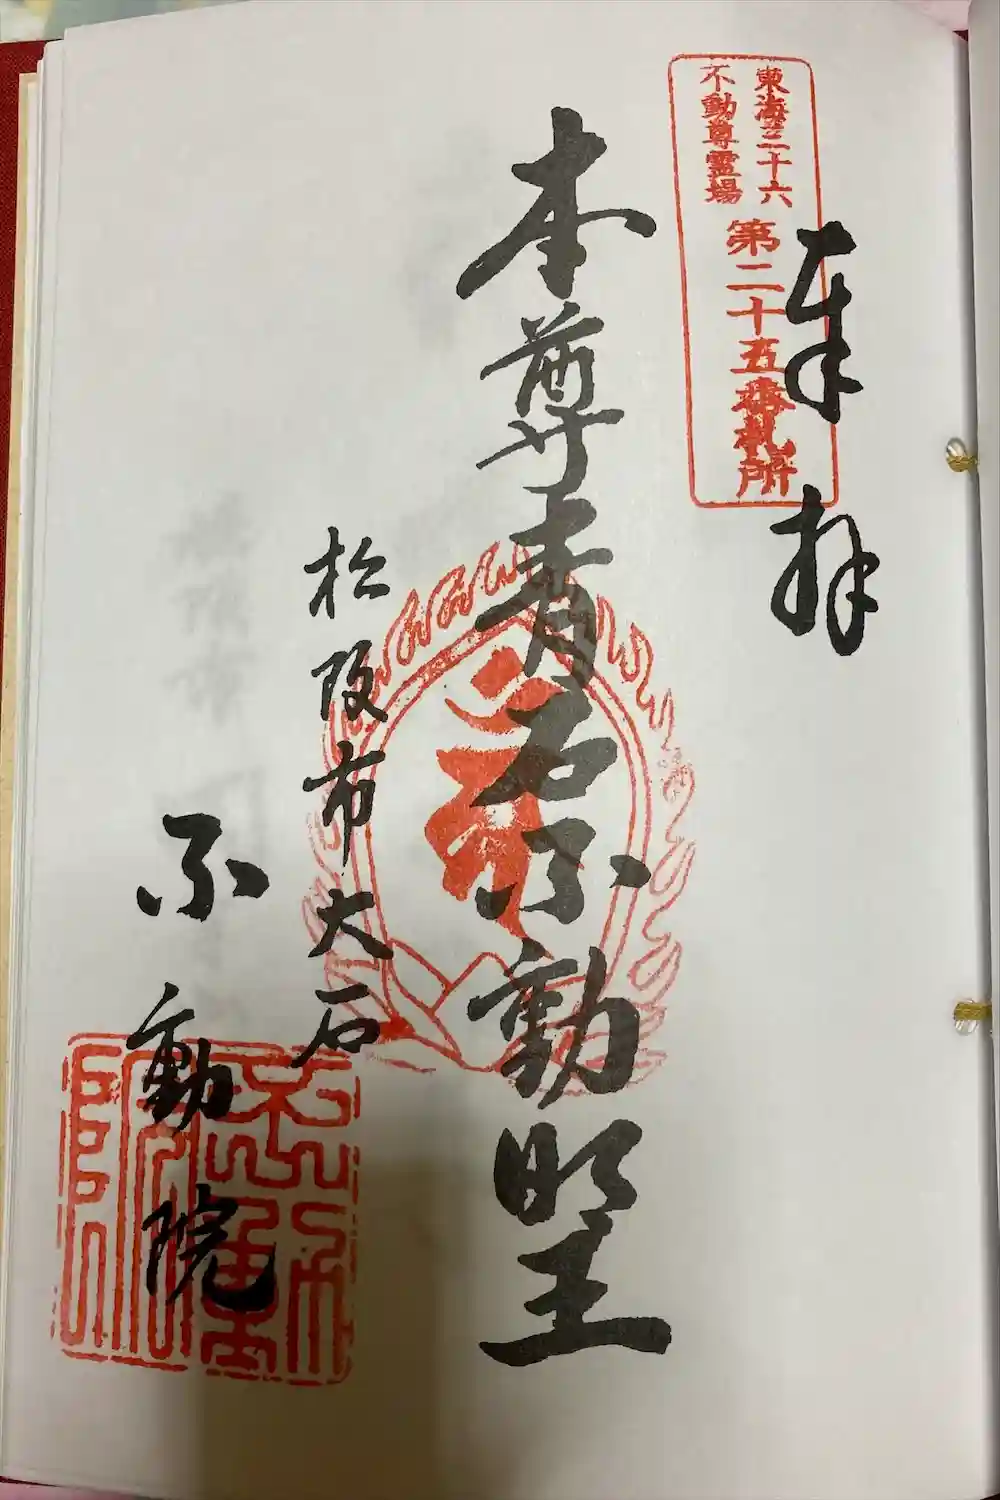 東海三十六
不動尊霊場
第二十五番札所
奉拝
本尊青石不動明王
松阪市大石
不動院
不動院